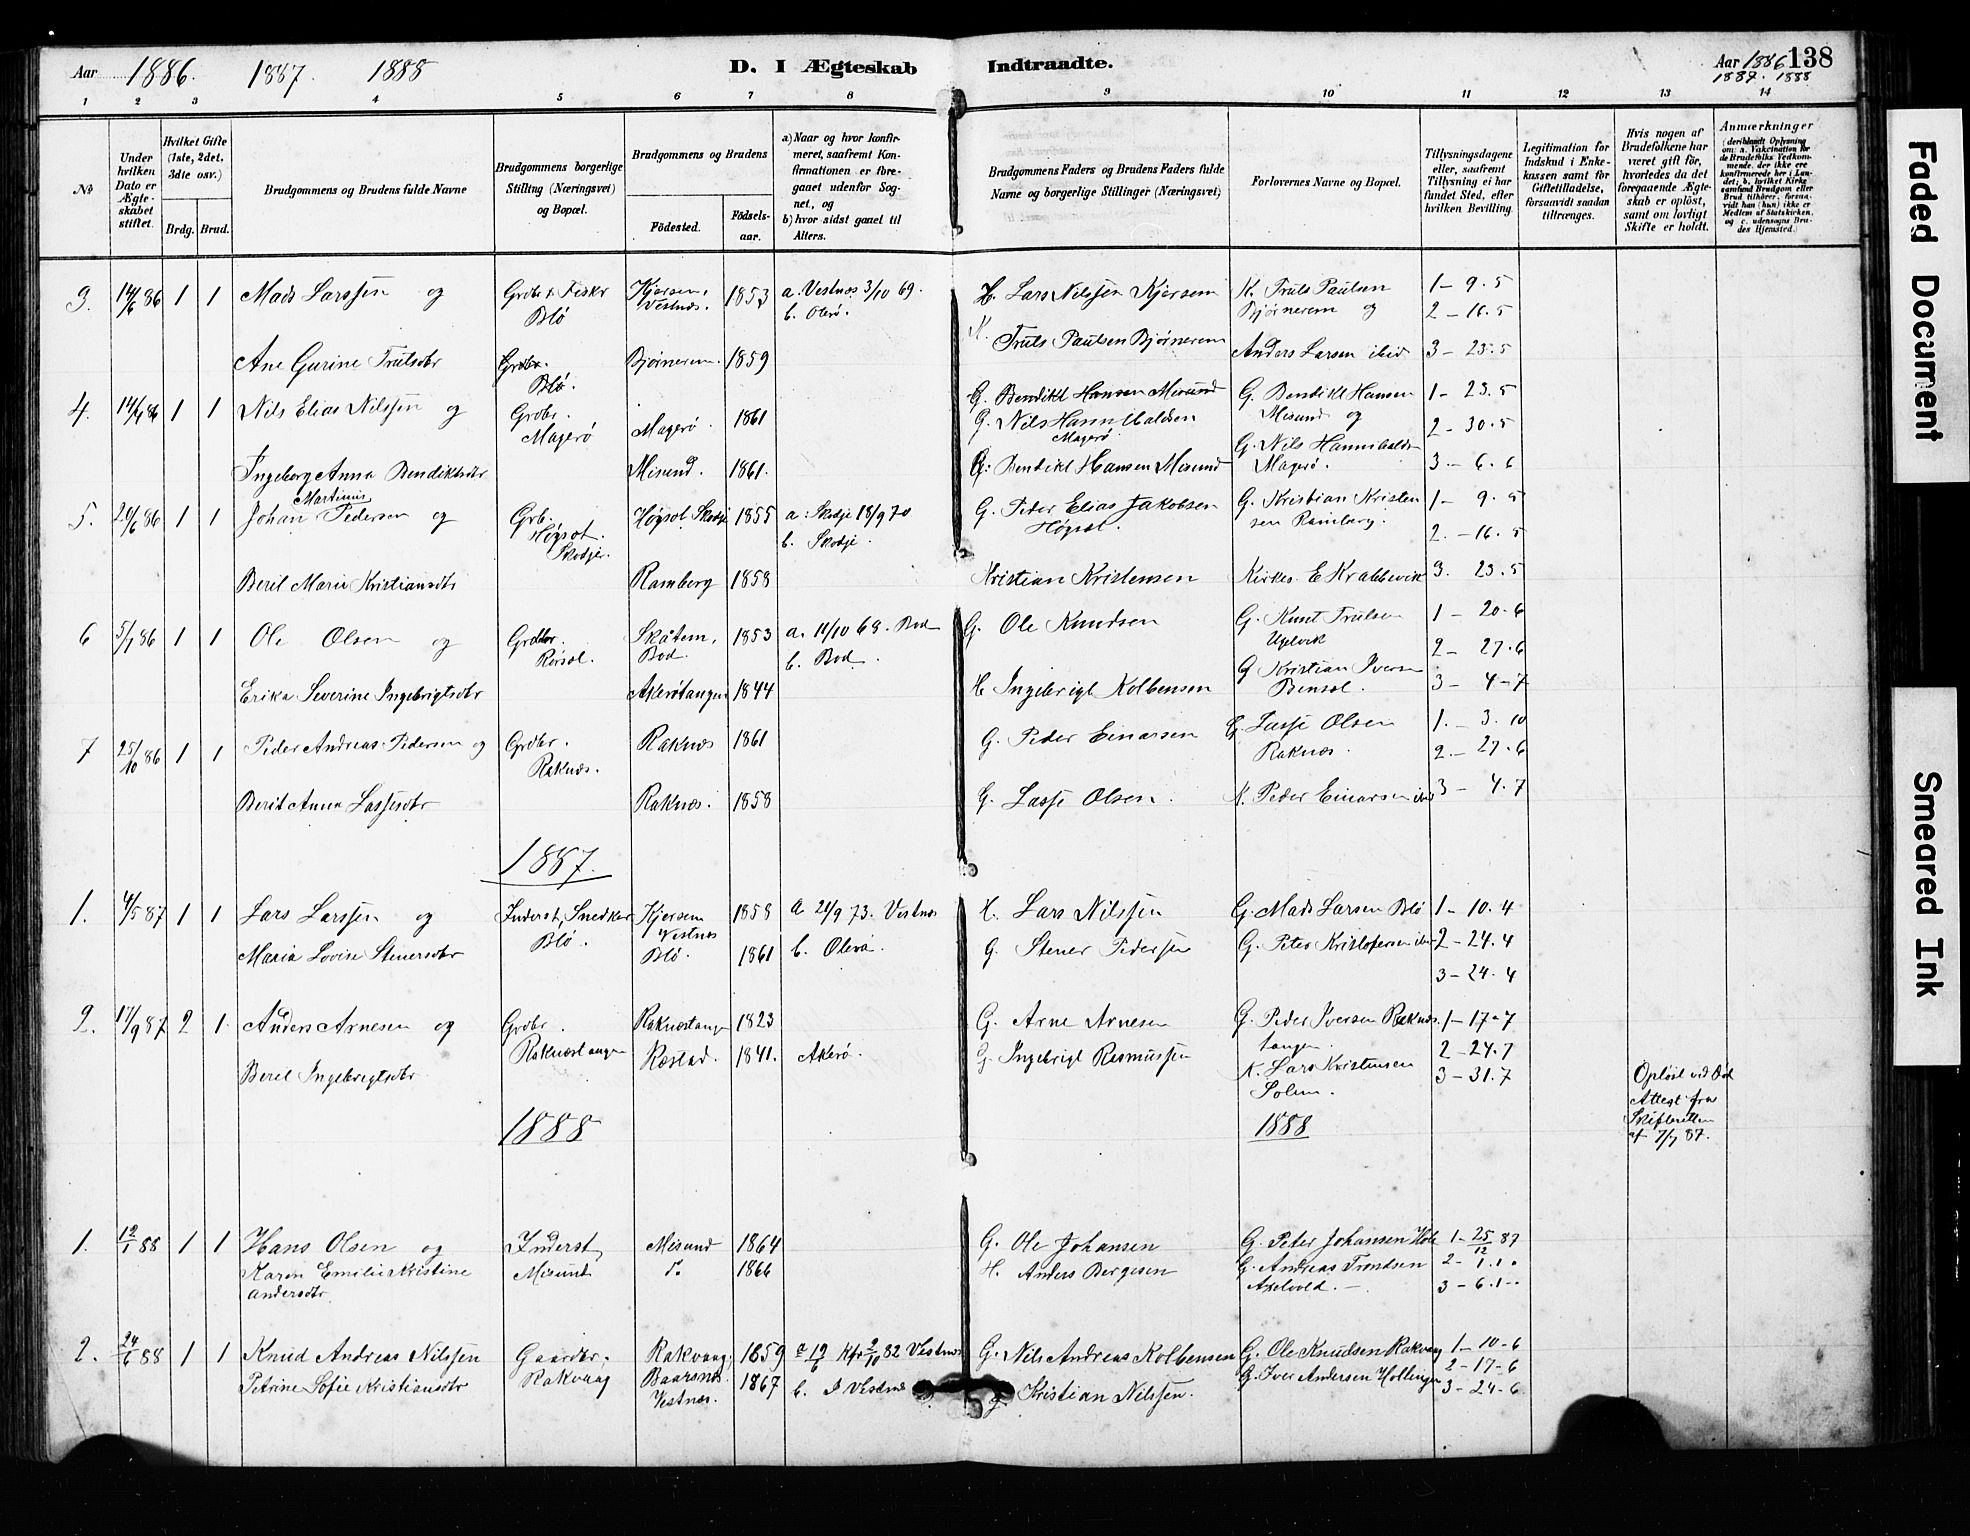 Aar 1886. 1887. 1888
D. I Ægteskab Indtraadte.
Aar 1886 138
1887. 1888
1 2 3 4 5 6 7 8 9 10 11 12 13 14
No
Under hvilken Dato er Ægteskabet stiftet.
Hvilket Gifte (1ste, 2det, 3die osv.)
Brdg. Brud.
Brudgommens og Brudens fulde Navne
Brudgommens borgerlige Stilling (Næringsvei) og Bopæl.
Brudgommens og Brudens
Födested. Födsels-aar.
a) Naar og hvor konfirmeret, saafremt Konfirmationen er foregaaet udenfor Sognet, og
b) hvor sidst gaaet til Alters.
Brudgommens Faders og Brudens Faders fulde Navne og borgerlige Stillinger (Næringsvei)
Forlovernes Navne og Bopæl.
Tillysningsdagene eller, saafremt Tillysning ei har fundet Sted, efter hvilken Bevilling.
Legitimation for Indskud i Enkekassen samt for Giftetilladelse, forsaavidt saadan tiltrænges.
Hvis nogen af Brudefolkene har været gift før, hvorledes da det foregaaende Ægteskab er opløst, samt om lovligt Skifte er holdt.
Anmærkninger
(deriblandt Oplysning om: a. Vakcination for de Brudefolks Vedkommende, der ikke ere konfirmerede her i Landet; b. hvilket Kirkesamfund Brudgom eller Brud tilhører, forsaavidt han (hun) ikke er Medlem af Statskirken, og c. udensogns Brudes Hjemsted.)
3. 14/6 86 1 1 Mads Larssen og Grdbr & Fiskr Blö Kjersem, Vestnæs. 1853 a. Vestnæs 3/10 69. b. Olerø. H. Lars Nilssen Kjersem K. Truls Paulsen Bjørnerem og 1 - 9. 5
2 - 16. 5
Ane Gurine Trulsdtr Grdbr. Blö. Bjørnerem. 1859 K. Truls Paulsen Bjørnerem Anders Larsen ibid 3 - 23. 5
G. Bendikt Hansen Misund
4. 14/6 86 1 1 Nils Elias Nilssen og Grdbr. Magerö Magerö. 1861 G. Nils Hannibaldsen Magerö. G. Bendikt Hansen Misund og 1 - 23. 5
2 - 30. 5
Ingeborg Anna Bendiktsdtr Misund. 1861. G: Bendikt Hansen Misund G. Nils Hannibaldsn Magerø. 3 - 6. 6
Martinus
5. 20/6 86 1 1 Johan Pedersen og Grb. Högset. Skodje. Högset Skodje 1855 a: Skodje 18/9 70 b. Skodje. G. Peder Elias Jakobsen Högset. G. Kristian Kristensen Ramberg. 1 - 9. 5
2. - 16. 5
Beril Marie Kristiansdtr Ramberg 1858 Kristian Kristensen Kirkes. E Krabbevik 3. 23. 5
6 5/7 86 1 1 Ole Olsen og Grdbr. Rörset. Bod. 1853 a. 11/10 68. Bod b. Bod. G. Ole Knudsen G. Knut Trulsen Uglvik 1 - 20. 6
2 - 27. 6
Erika Severine Ingebrigtsdtr Akerøtangen 1844 H Ingebrigt Kolbensen G Kristian Iversen Benset. 3 - 4 - 7
7 25/10 86 1 1 Peder Andreas Pedersen og Grdbr. Raknæs. Raknæs 1861 G. Peder Einarsen G. Lasse Olsen Raknæs. 1. - 3. 10
2 - 27. 6
Berit Anna Lassesdtr Raknæs. 1858 G. Lasse Olsen. K. Peder Einarsen ibid 3 - 4. 7
1887.
1. 4/5 87 1 1 Lars Larssen og Inderst, Snedker Blö. Kjersem Vestnæs 1858 a 21/9 73. Vestnæs H. Lars Nilssen G. Mads Larsen Blö 1 - 10. 4
Maria Lovise Stenersdtr Blö. 1861 b. Olerø. G. Stener Pedersen G. Peter Kristofersen ibid 2 - 24. 4
3 - 24. 4
2. 17/9 87 2 1. Anders Arnesen og Grdbr. Raknæstangen Raknæstangen 1823 G. Arne Arnesen G. Peder Iversen Raknæstangen. 1 - 17 - 7
Beret Ingebrigtsdtr. Ræstad. 1841. Akerö. G. Ingebrigt Rasmussen K. Lars Kristensen Solem. 2 - 24. 7
3 - 31. 7
Opløst ved Død
Attest fra
Skifteretten
af 7/7 87.
1888 1888
1. 12/1 88 1 1 Hans Olsen og Inderst, Misund Misund 1864 G. Ole Johansen G. Peter Johansen Hole 1 - 25/12 87
Karen Emilie Kristine Andersdtr do 1866 H. Anders Bergesen G. Andreas Trondsen Axelvold. 2 - 1. 1
3 - 6. 1
2. 24/6 88 1 1 Knud Andreas Nilssen Gaardbr, Rakvaag Rakvaag, 1859 82 Vestnæs G. Nils Andreas Kolbensen G. Ole Knudsen Rakvaag 1 - 10 - 6
2 - 17 - 6
Petrine Sofie Kristiansdtr Baarsnæs. Vestnæs. 1867 b. I Vestnæs G. Kristian Nilssen. G. Iver Andersen Hollingen 3 - 24 - 6
Faded Document
Smeared Ink